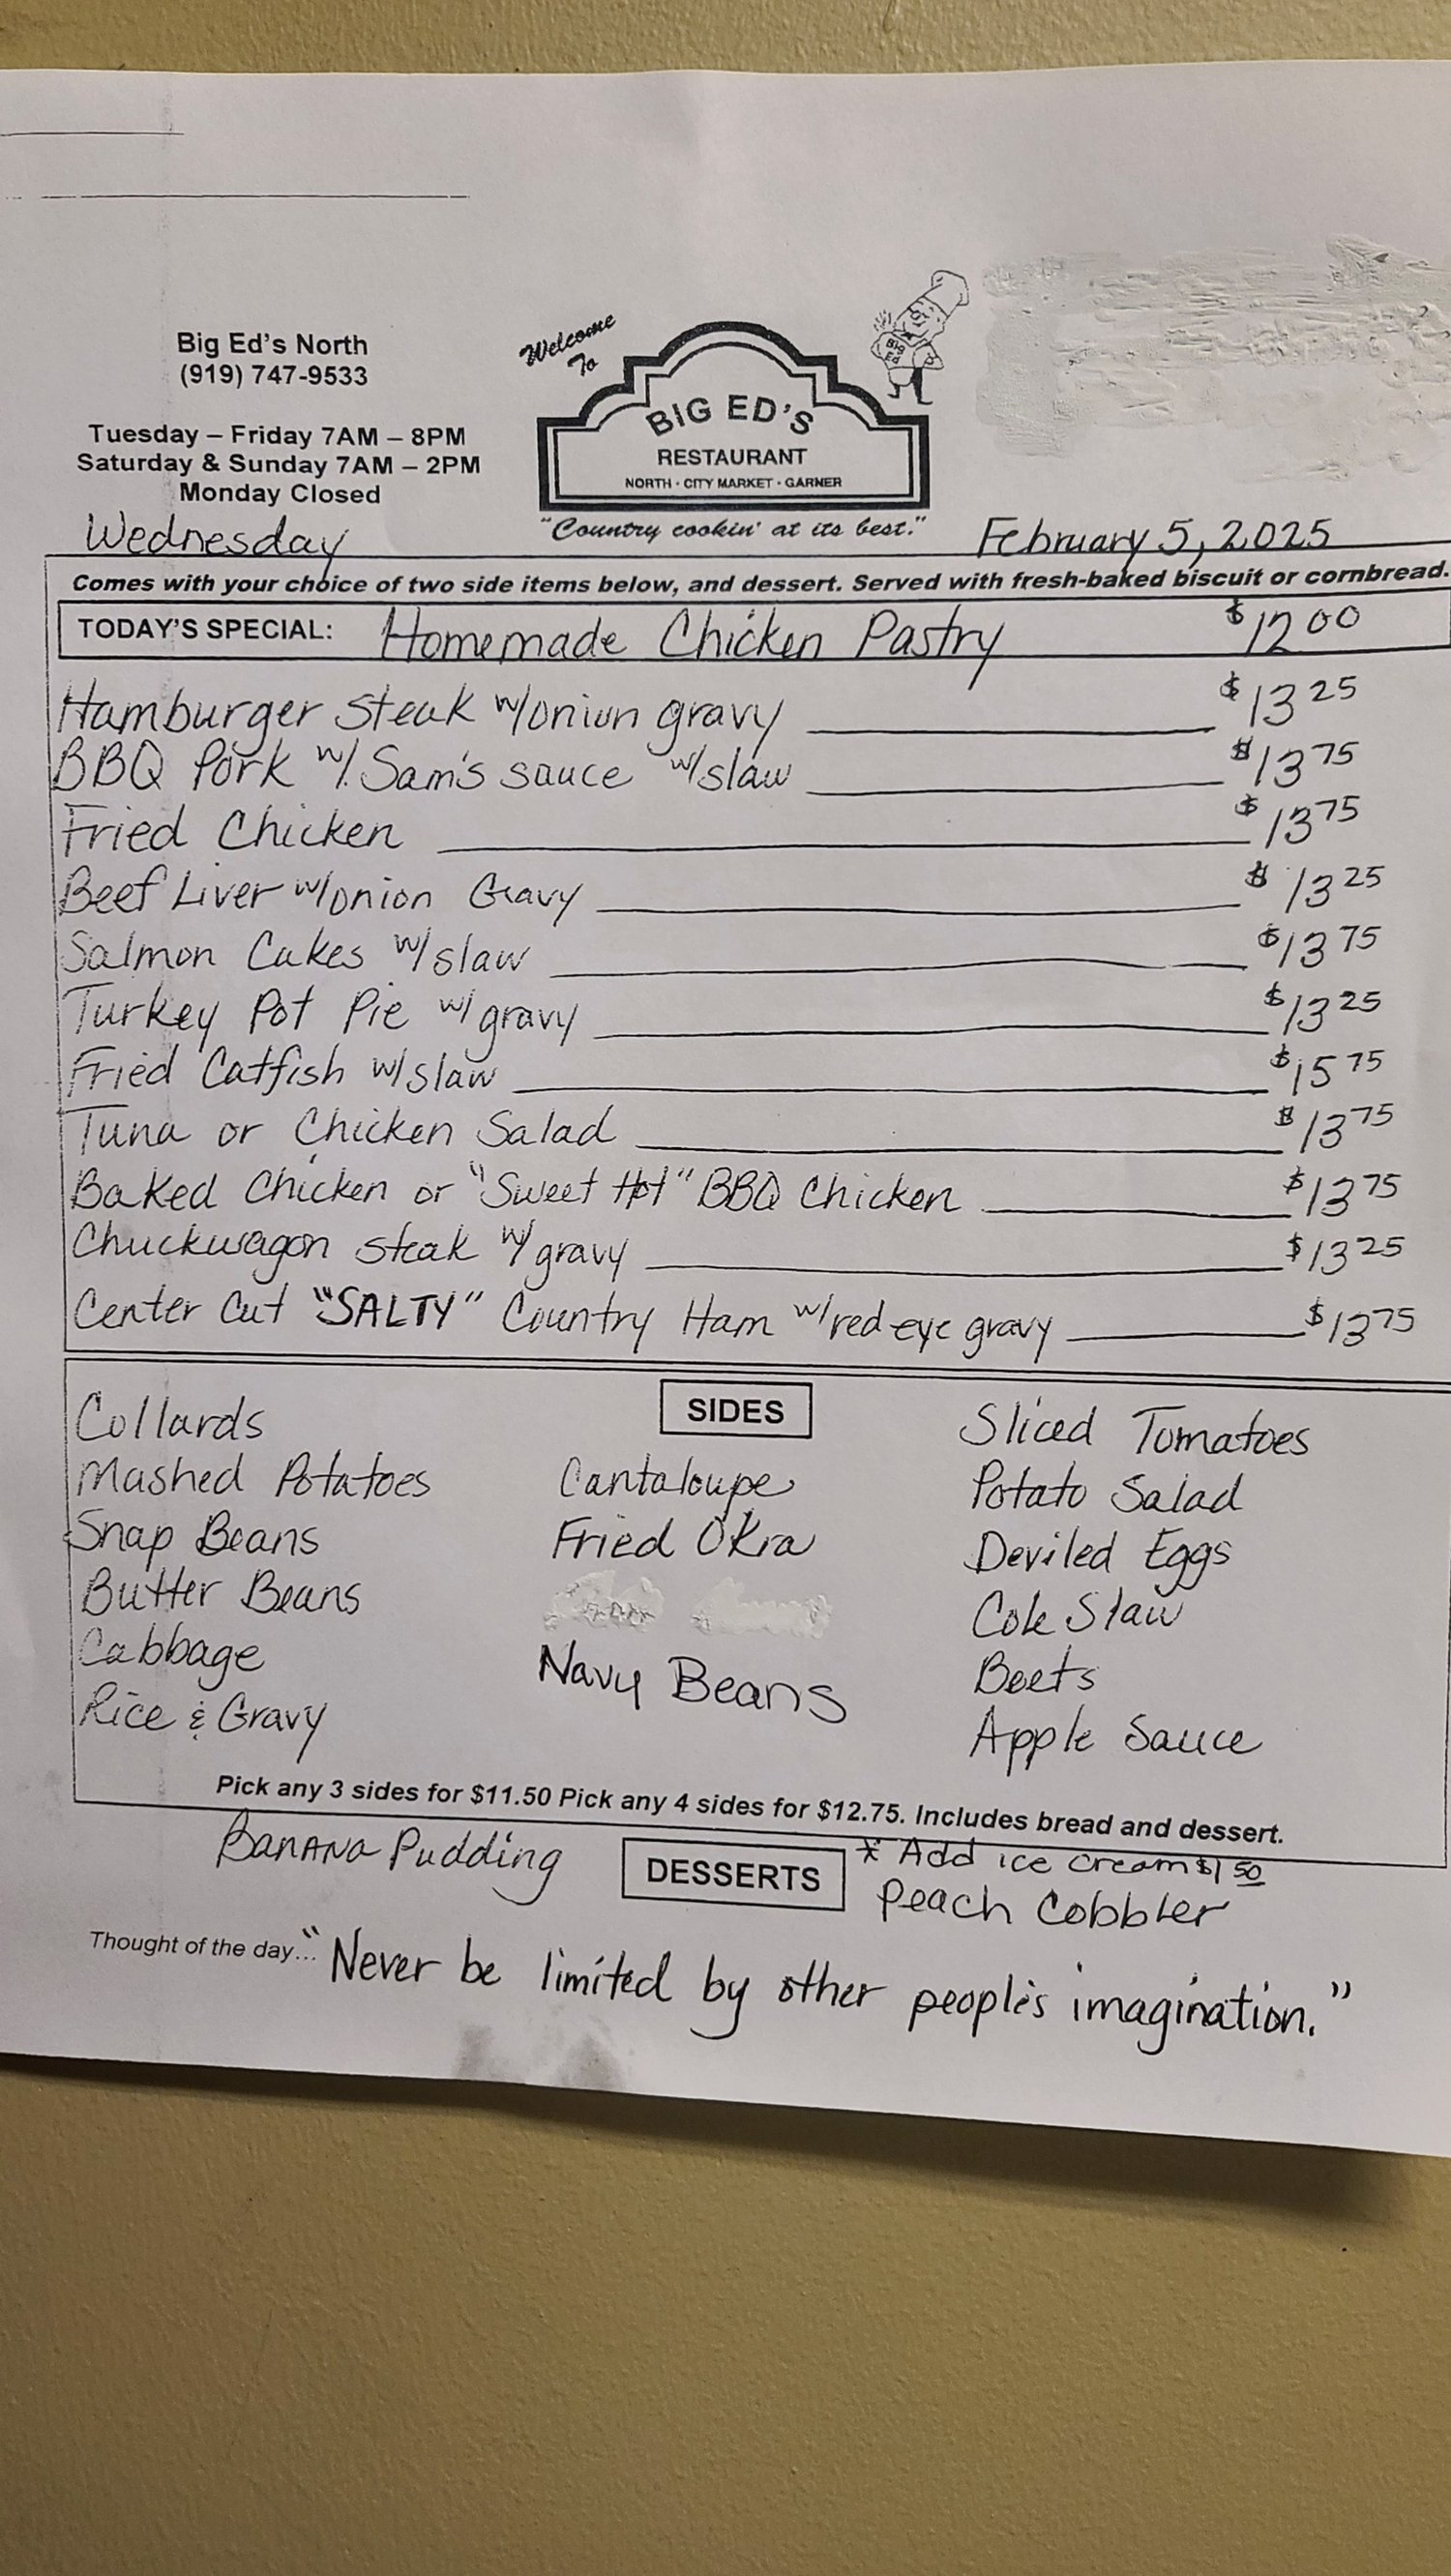 Big Ed's North
(919) 747-9533
Tuesday – Friday 7AM – 8PM
Saturday & Sunday 7AM – 2PM
Monday Closed
Welcome
To
BIG ED'S
RESTAURANT
NORTH · CITY MARKET · GARNER
"Country cookin' at its best."
BIG
Ed
Wednesday
February 5, 2025
Comes with your choice of two side items below, and dessert. Served with fresh-baked biscuit or cornbread.
TODAY'S SPECIAL: Homemade Chicken Pastry $12 00
Hamburger steak w/onion gravy $13 25
BBQ Pork w/ Sam's sauce w/slaw $13 75
Fried Chicken $13 75
Beef Liver w/onion Gravy $13 25
Salmon Cakes w/slaw $13 75
Turkey Pot Pie w/ gravy $13 25
Fried Catfish w/slaw $15 75
Tuna or Chicken Salad $13 75
Baked Chicken or "Sweet Hot" BBQ Chicken $13 75
Chuckwagon steak w/ gravy $13 25
Center Cut "SALTY" Country Ham w/red eye gravy $13 75
SIDES
Collards
Mashed Potatoes
Snap Beans
Butter Beans
Cabbage
Rice & Gravy
Cantaloupe
Fried Okra
Navy Beans
Sliced Tomatoes
Potato Salad
Deviled Eggs
Cole Slaw
Beets
Apple Sauce
Pick any 3 sides for $11.50 Pick any 4 sides for $12.75. Includes bread and dessert.
Banana Pudding
DESSERTS
* Add ice cream $1 50
Peach Cobbler
Thought of the day... "Never be limited by other people's imagination."